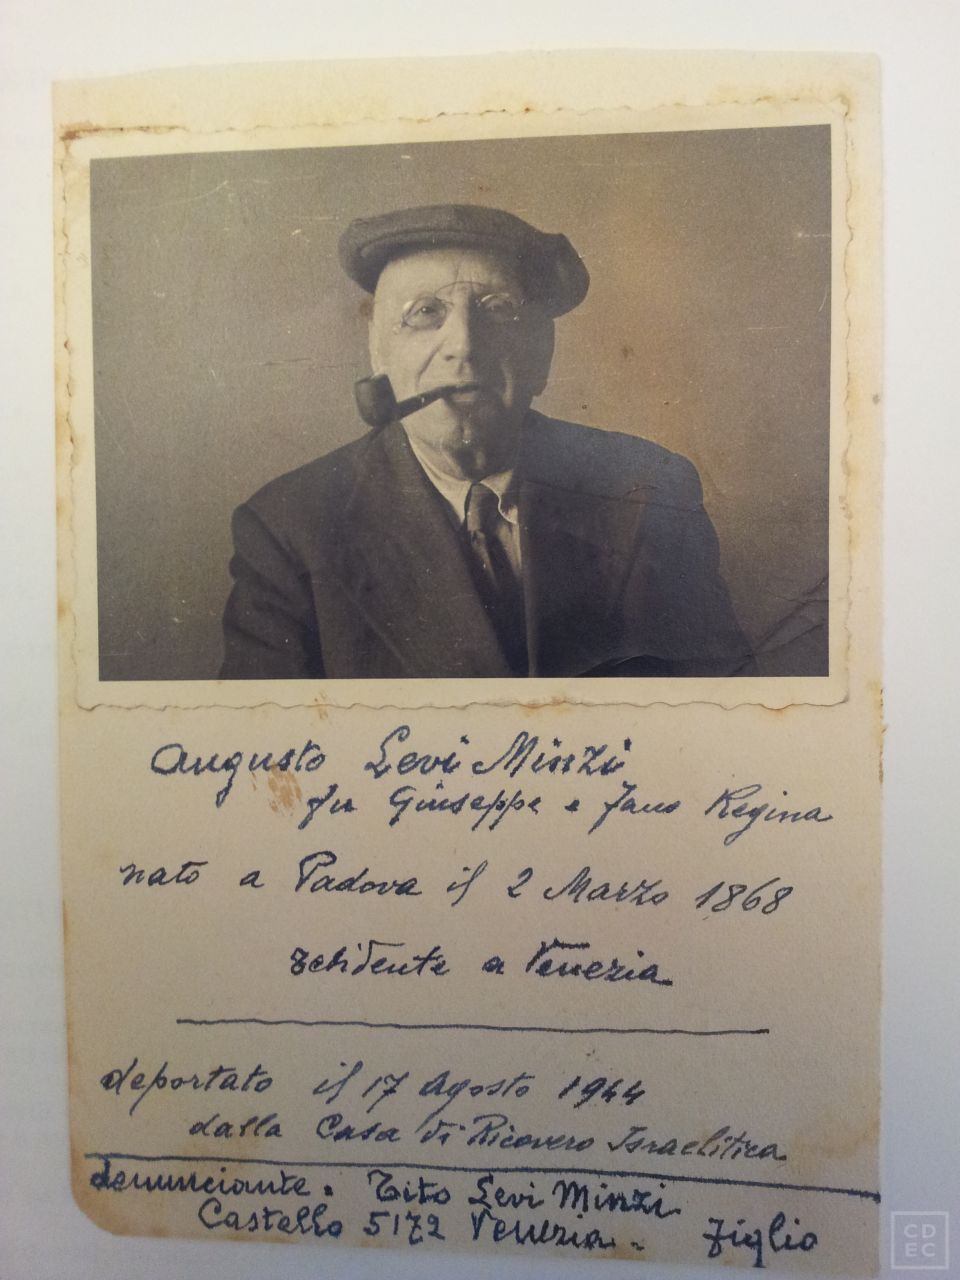 Augusto Levi Minzi
fu Giuseppe e Fano Regina
nato a Padova il 2 Marzo 1868
residente a Venezia
deportato il 17 Agosto 1944
dalla Casa di Ricovero Israelitica
denunciante. Tito Levi Minzi
Castello 5172 Venezia. Figlio
CD
EC